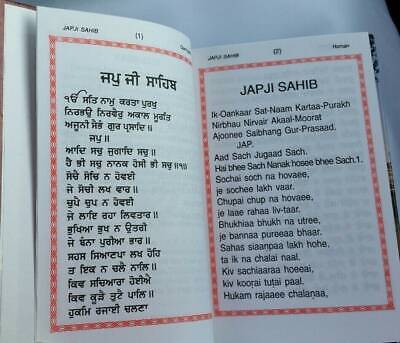 JAPJI SAHIB
(1)
ਜਪੁ ਜੀ ਸਾਹਿਬ
ੴ ਸਤਿ ਨਾਮੁ ਕਰਤਾ ਪੁਰਖੁ
ਨਿਰਭਉ ਨਿਰਵੈਰੁ ਅਕਾਲ ਮੂਰਤਿ
ਅਜੂਨੀ ਸੈਭੰ ਗੁਰ ਪ੍ਰਸਾਦਿ॥
ਜਪੁ॥
ਆਦਿ ਸਚੁ ਜੁਗਾਦਿ ਸਚੁ॥
ਹੈ ਭੀ ਸਚੁ ਨਾਨਕ ਹੋਸੀ ਭੀ ਸਚੁ॥੧॥
ਸੋਚੈ ਸੋਚਿ ਨ ਹੋਵਈ
ਜੇ ਸੋਚੀ ਲਖ ਵਾਰ॥
ਚੁਪੈ ਚੁਪ ਨ ਹੋਵਈ
ਜੇ ਲਾਇ ਰਹਾ ਲਿਵਤਾਰ॥
ਭੁਖਿਆ ਭੁਖ ਨ ਉਤਰੀ
ਜੇ ਬੰਨਾ ਪੁਰੀਆ ਭਾਰ॥
ਸਹਸ ਸਿਆਣਪਾ ਲਖ ਹੋਹਿ
ਤ ਇਕ ਨ ਚਲੈ ਨਾਲਿ॥
ਕਿਵ ਸਚਿਆਰਾ ਹੋਈਐ
ਕਿਵ ਕੂੜੈ ਤੁਟੈ ਪਾਲਿ॥
ਹੁਕਮਿ ਰਜਾਈ ਚਲਣਾ
JAPJI SAHIB
(2)
Roman
JAPJI SAHIB
Ik-Oankaar Sat-Naam Kartaa-Purakh
Nirbhau Nirvair Akaal-Moorat
Ajoonee Saibhang Gur-Prasaad.
JAP.
Aad Sach Jugaad Sach.
Hai bhee Sach Nanak hosee bhee Sach.1.
Sochai soch na hovaee,
je sochee lakh vaar.
Chupai chup na hovaee,
je laae rahaa liv-taar.
Bhukhiaa bhukh na utree,
je bannaa pureeaa bhaar.
Sahas siaanpaa lakh hohe,
ta ik na chalai naal.
Kiv sachiaaraa hoeeai,
kiv koorai tutai paal.
Hukam rajaaee chalanaa,